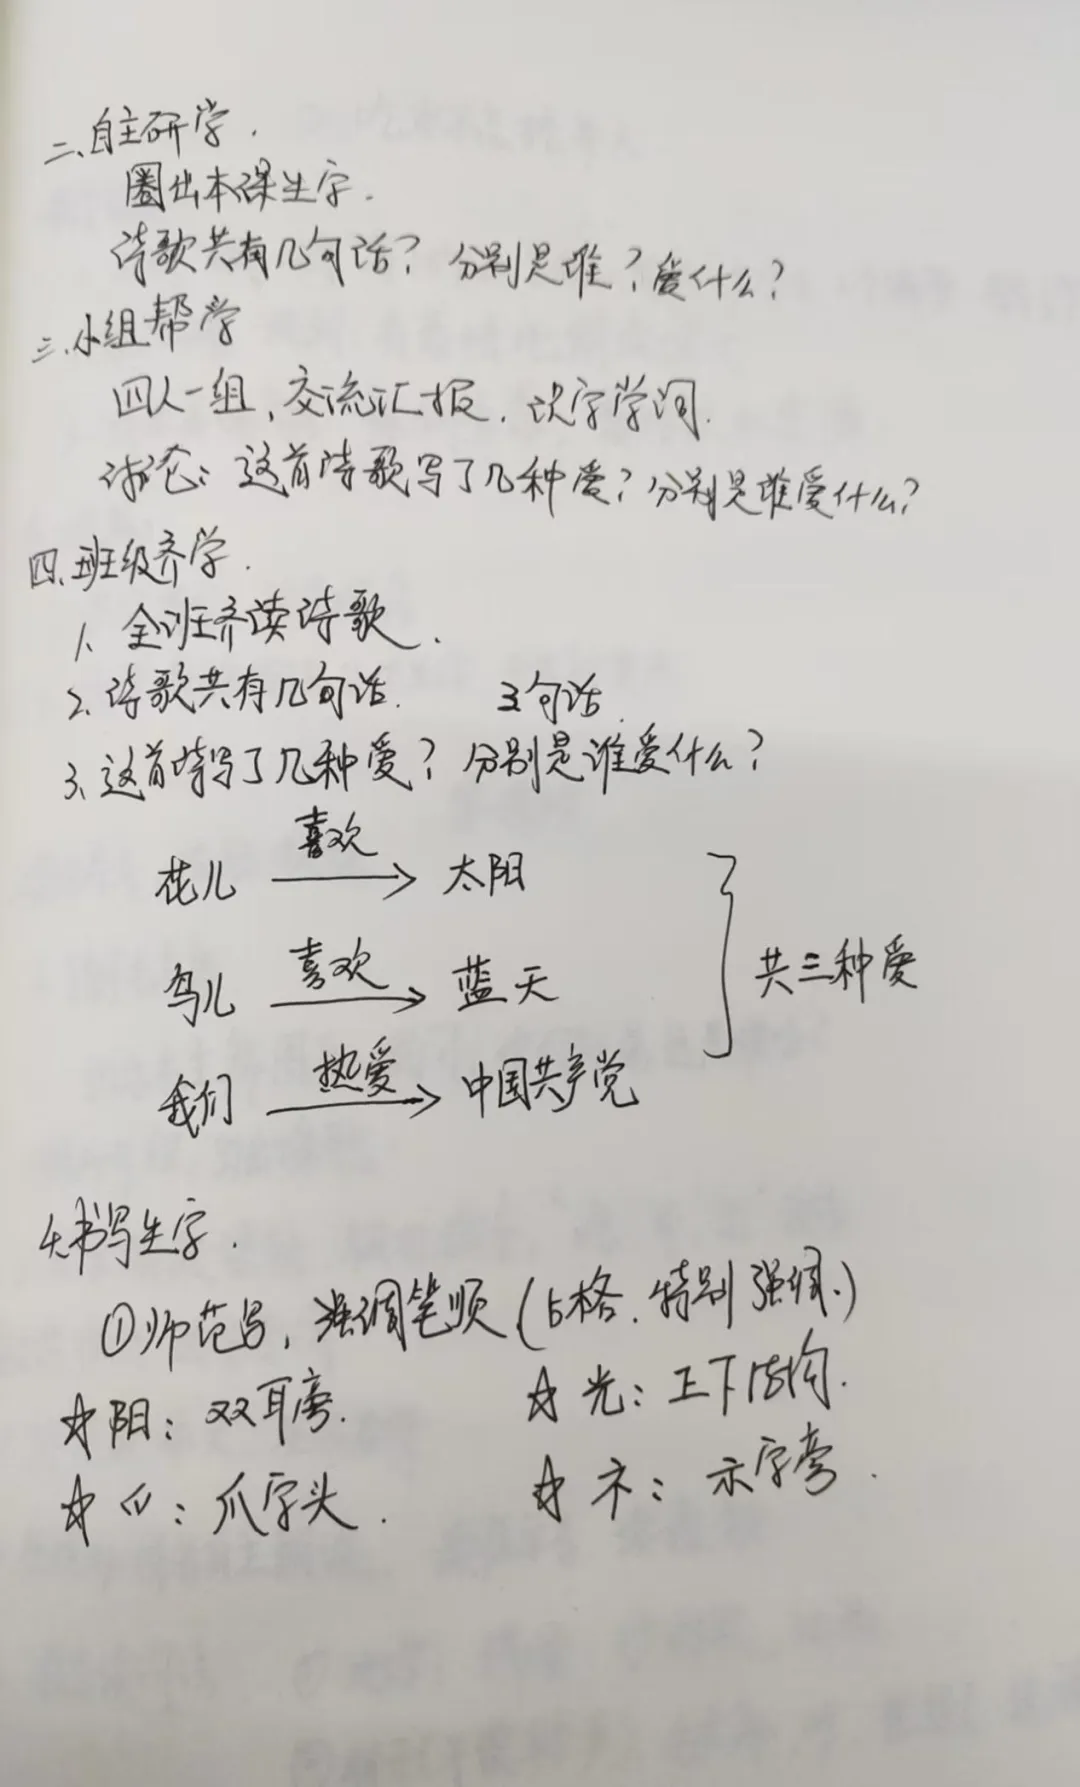 二、自主研学.
圈出本课生字.
诗歌共有几句话？分别是谁？爱什么？
三、小组帮学
四人一组，交流汇报，识字学词.
讨论：这首诗歌写了几种爱？分别是谁爱什么？
四、班级齐学.
1、全班齐读诗歌.
2、诗歌共有几句话. 3句话.
3、这首诗写了几种爱？分别是谁爱什么？
花儿 喜欢 太阳
鸟儿 喜欢 蓝天
我们 热爱 中国共产党
共三种爱
书写生字.
①师范写，强调笔顺(占格.特别强调.)
☆阳：双耳旁. ☆光：上下结构.
☆爫：爪字头. ☆礻：示字旁.